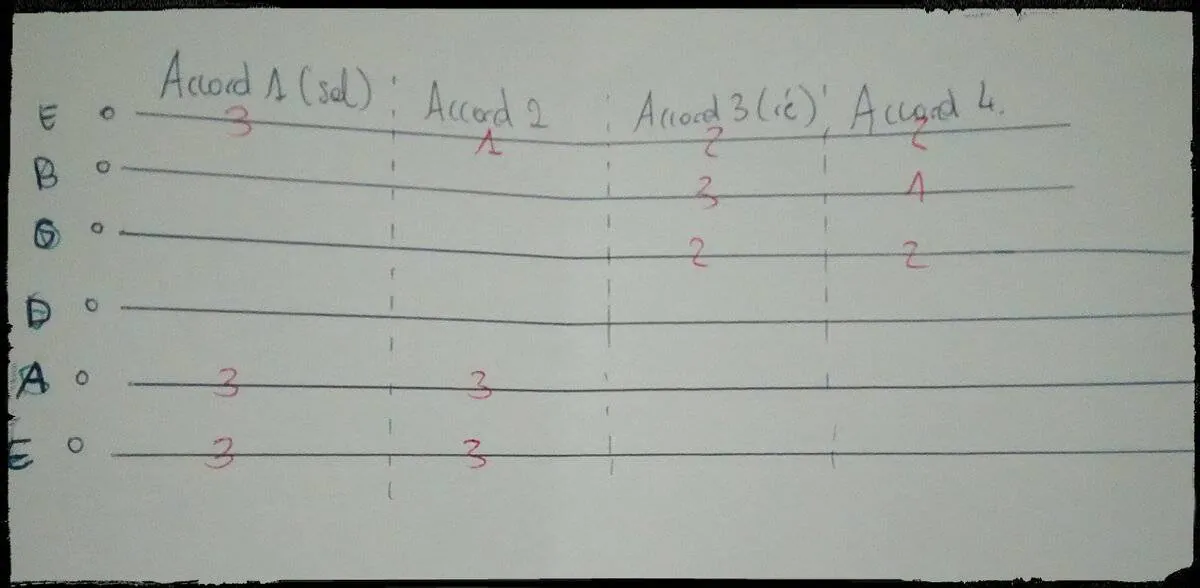 Accord 1 (sol) Accord 2 Accord 3 (ré) Accord 4.
E o 3 1 2 2
B o 3 1
G o 2 2
D o
A o 3 3
E o 3 3